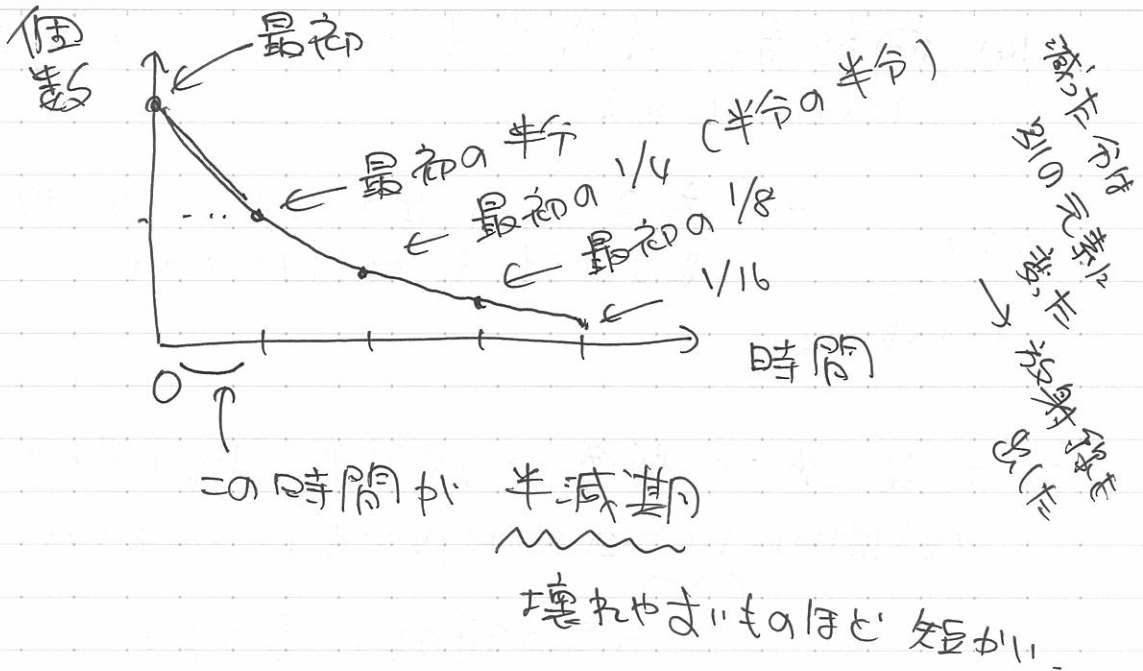 個数
最初
最初の半分
最初の 1/4 (半分の半分)
最初の 1/8
1/16
時間
0
この時間が 半減期
壊れやすいものほど 短かい.
減った分は
別の元素に
変った
→ 放射線を
出した